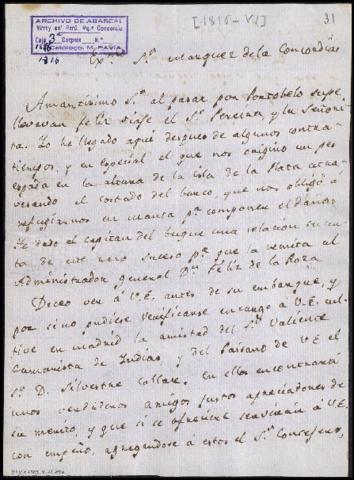 ARCHIVO DE ABASCAL
Virrey del Perú. Mq.s Concordia
Caja 3ª Carpeta N.º
1816
[1816-VI]
31
Ex.mo S.or Marquez de la Concordia
Amantisimo S.or al pasar por Portobelo supe
llevavan feliz viaje el S.or Pereira, y la Señori-
ta. Yo he llegado aqui despues de algunos contra
tiempos, y en especial el que nos origino un pes
espada en la altura de la Isla de la Plata atra-
vesando el costado del barco, que nos obligó á
refugiarnos en Manta p.a componer el daño.
He dado el capitan del buque una relacion
ta de este raro suceso p.a que la remita al
Administrador general D.n Felix de la Roza
Deceo ver á V.E. antes de su embarque, y
por si no pudiese verificarse encargo á V.E. cul-
tive en Madrid la amistad del S.or Valiente
Camarista de Indias, y del Paisano de V.E. el
S.or D. Silvestre Collar. en ellos encontrará
unos verdaderos amigos justos apreciadores de
su merito, y que si se ofreciere serviran á V.E.
con empeño, agregandose á estos el S.or Consejero,